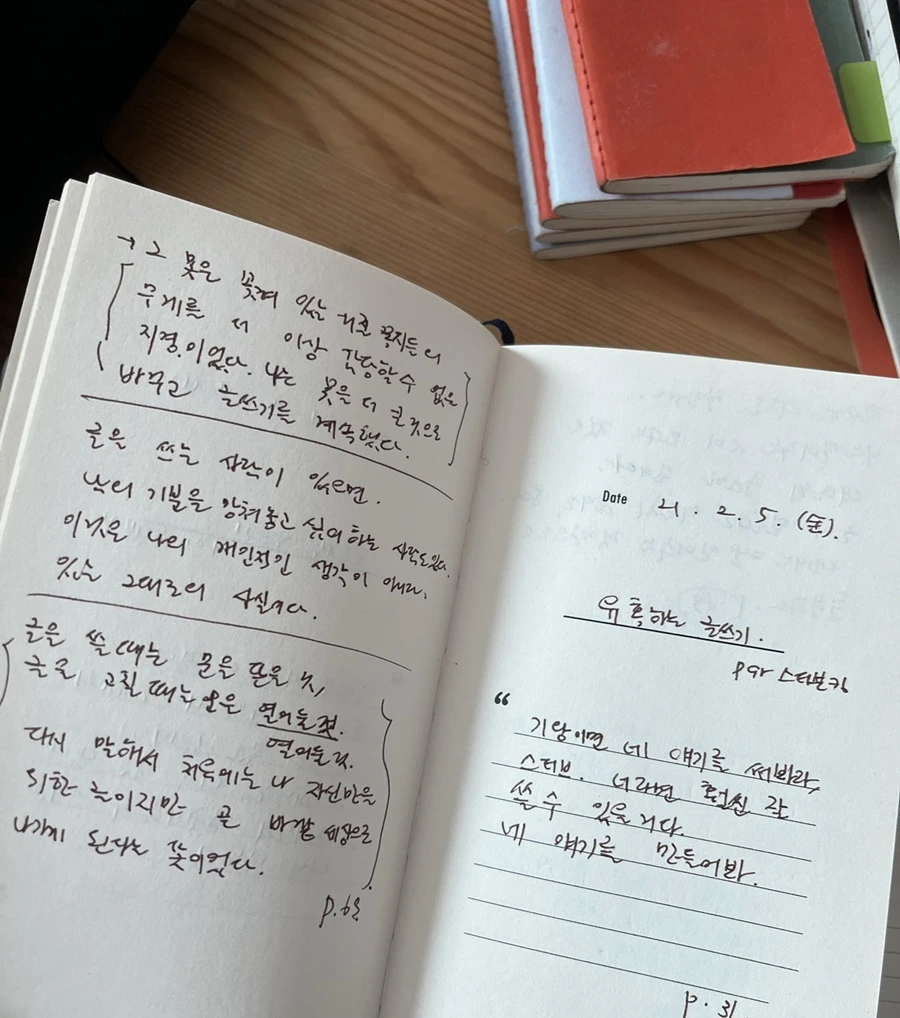 → 그 못은 꽂혀 있는 거절 쪽지들의
무게를 더 이상 감당할 수 없을
지경이었다. 나는 못을 더 큰 것으로
바꾸고 글쓰기를 계속했다.
글을 쓰는 사람이 있으면.
남의 기분을 망쳐놓고 싶어 하는 사람도 있다.
이것은 나의 개인적인 생각이 아니라,
있는 그대로의 사실이다.
글을 쓸 때는 문을 닫을 것,
글을 고칠 때는 문을 열어둘 것.
열어둘 것.
다시 말해서 처음에는 나 자신만을
위한 글이지만 곧 바깥 세상으로
나가게 된다는 뜻이었다.
Date 21. 2. 5. (金).
유혹하는 글쓰기.
par 스티븐 킹
“
기왕이면 네 얘기를 써봐라,
스티브. 너라면 훨씬 잘
쓸 수 있을 거다.
네 얘기를 만들어봐.
p. 31